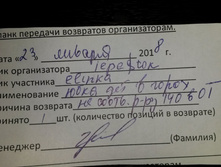 Бланк передачи возвратов организаторам.
Дата «23» января 2018 г.
Ник организатора Терелок
Ник участника евичка
наименование юбка дл в горох
Причина возврата не соотв. р-ру 140 601
Принято 1 шт. (количество позиций в возврате)
Менеджер (Фамилия)